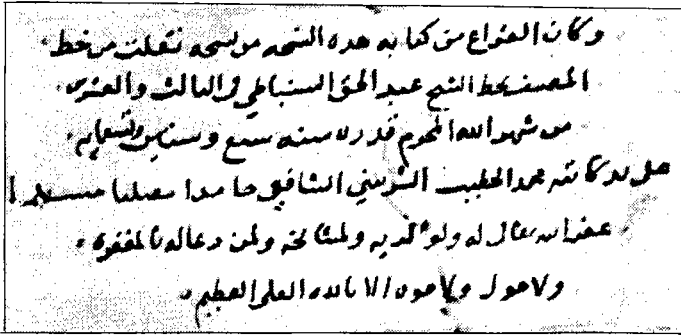 وكان الفراغ من كتابة هذه النسخه من نسخه نقلت من خط
المصنف بخط الشيخ عبد الحق السنباطي في الثالث والعشرين
من شهر الله المحرم قدره سنه سبع وستين وتسعمايه
على يد كاتبه محمد الخطيب الشربيني الشافعي حامدا مصليا مسلما
غفر الله تعالى له ولوالديه ولمشايخه ولمن دعا له بالمغفره
ولا حول ولا قوه الا بالله العلي العظيم